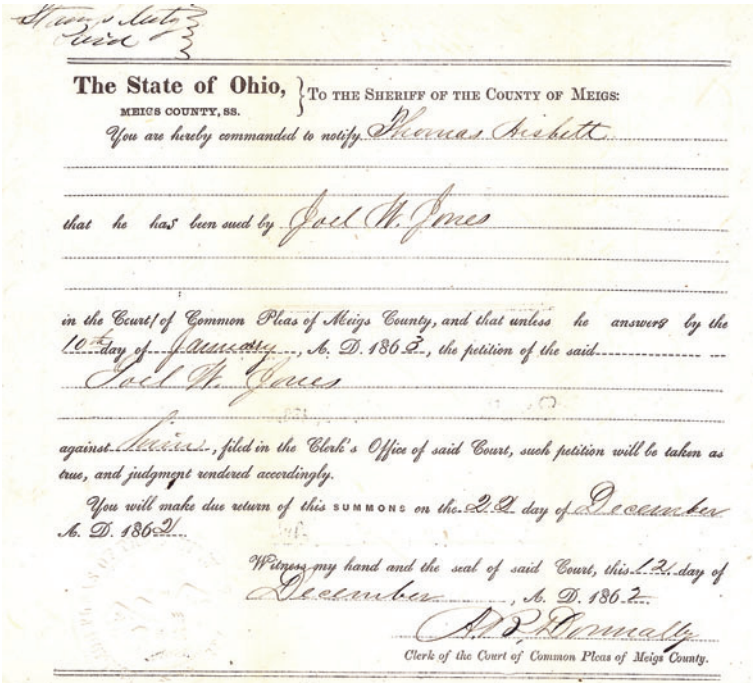 Stamp Duty
Paid
The State of Ohio, } TO THE SHERIFF OF THE COUNTY OF MEIGS:
MEIGS COUNTY, SS.
You are hereby commanded to notify Thomas Nisbett
that he has been sued by Joel W. Jones
in the Court of Common Pleas of Meigs County, and that unless he answers by the
10th day of January, A. D. 1863, the petition of the said
Joel W. Jones
against him, filed in the Clerk's Office of said Court, such petition will be taken as
true, and judgment rendered accordingly.
You will make due return of this SUMMONS on the 22 day of December
A. D. 1862.
Witness my hand and the seal of said Court, this 12 day of
December, A. D. 1862.
A. B. Donnally
Clerk of the Court of Common Pleas of Meigs County.